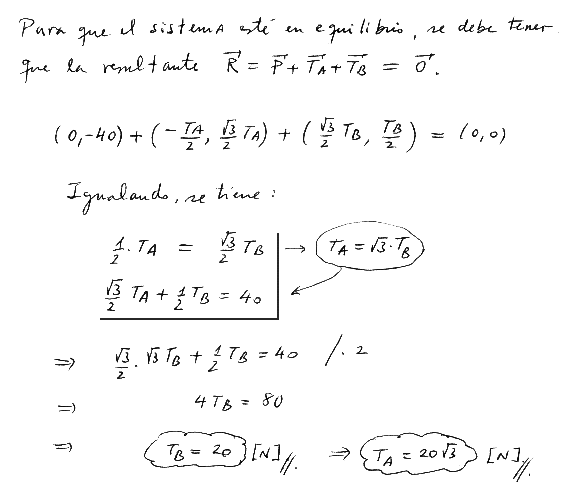 Para que el sistema esté en equilibrio, se debe tener
que la resultante R⃗ = P⃗ + T⃗A + T⃗B = 0⃗.
(0,-40) + (-TA/2, √3/2 TA) + (√3/2 TB, TB/2) = (0,0)
Igualando, se tiene:
1/2 · TA = √3/2 TB → TA = √3 · TB
√3/2 TA + 1/2 TB = 40
⇒ √3/2 · √3 TB + 1/2 TB = 40 / · 2
⇒ 4 TB = 80
⇒ TB = 20 [N]//. ⇒ TA = 20√3 [N]//.